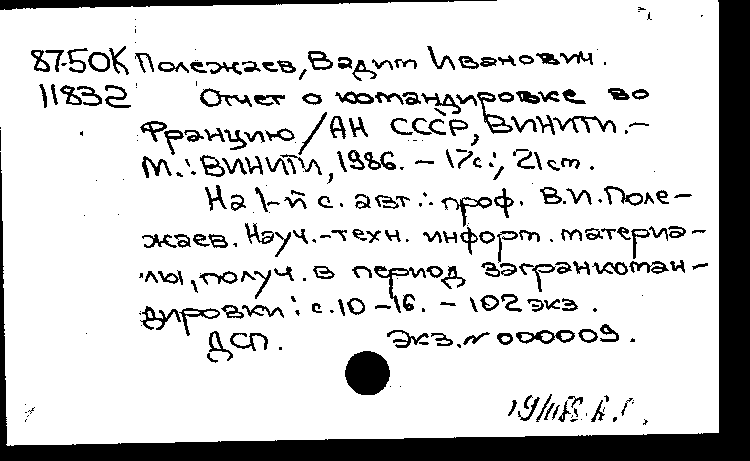 87-50К Полежаев, Вадим Иванович.
11832 Отчет о командировке во
Францию / АН СССР, ВИНИТИ. -
М.: ВИНИТИ, 1986. - 17с.; 21 см.
На 1-й с. авт.: проф. В.И. Поле-
жаев. Науч.-техн. информ. материа-
лы, получ. в период загранкоман-
дировки: с. 10-16. - 102 экз.
ДСП. Экз. № 000009.